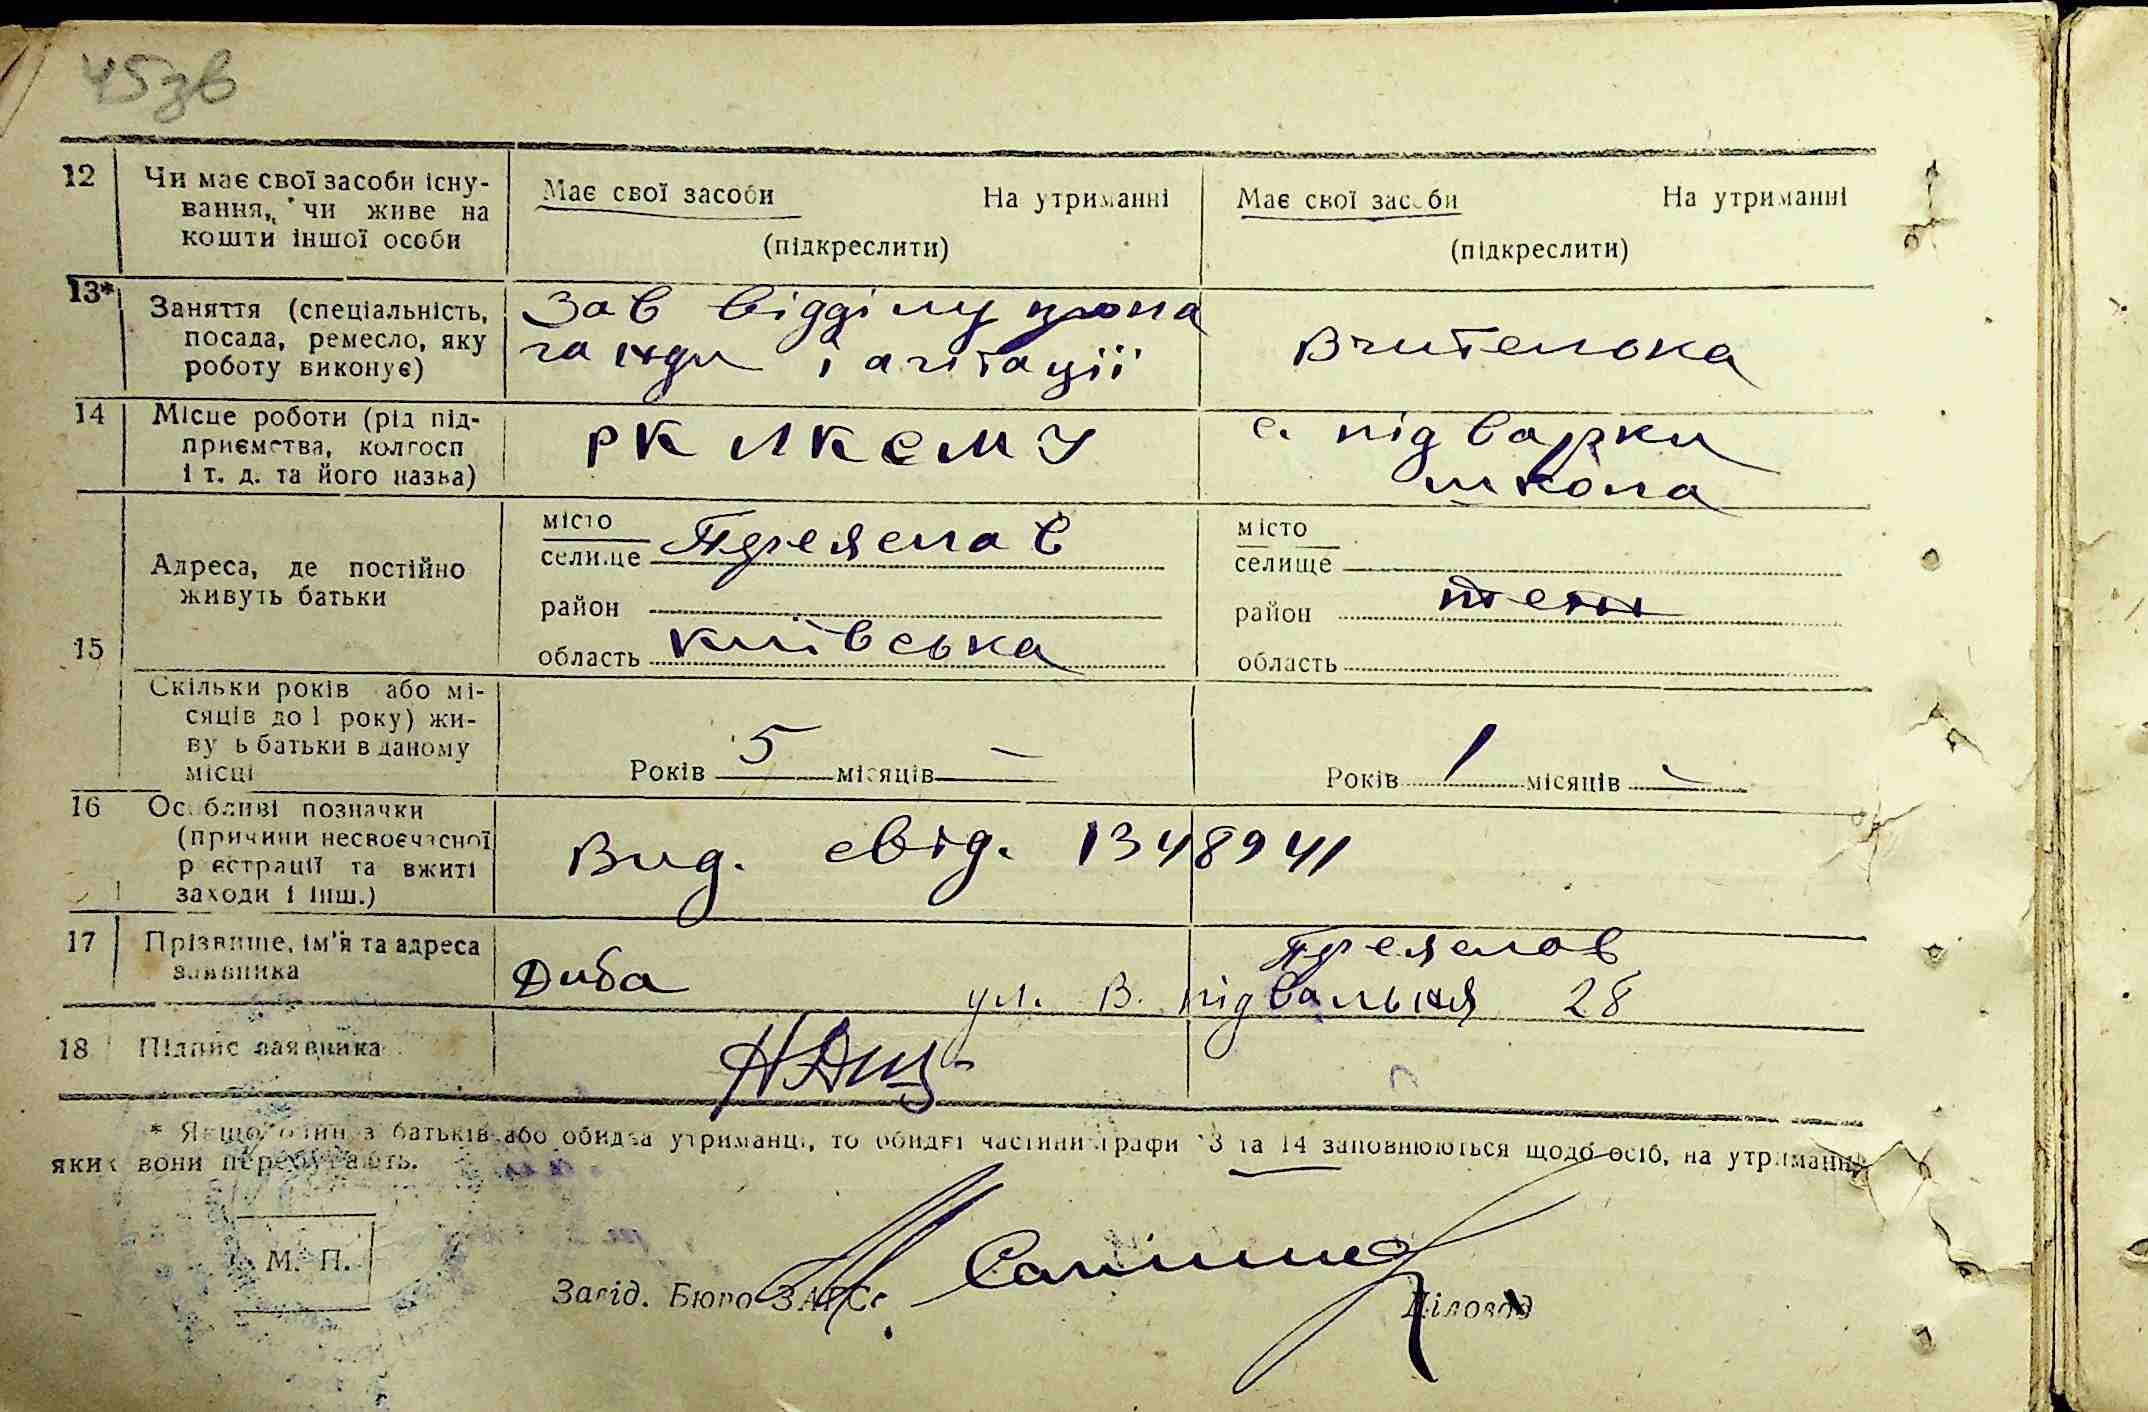 45зв
12 Чи має свої засоби існу-
вання, чи живе на
кошти іншої особи
Має свої засоби На утриманні
(підкреслити)
Має свої засоби На утриманні
(підкреслити)
13* Заняття (спеціальність,
посада, ремесло, яку
роботу виконує)
Зав відділу пропа
ганди і агітації
Вчителька
14 Місце роботи (рід під-
приємства, колгосп
і т. д. та його назва)
РК ЛКСМУ
с. підварки
школа
15 Адреса, де постійно
живуть батьки
місто
селище Переяслав
район
область київська
місто
селище
район
область
Скільки років або мі-
сяців до 1 року) жи-
вуть батьки в даному
місці
Років 5 місяців —
Років 1 місяців —
16 Особливі позначки
(причини несвоєчасної
реєстрації та вжиті
заходи і інш.)
Вид. свід. 1348941
17 Прізвище, ім'я та адреса
заявника
Диба
Переяслов
ул. В. підвальная 28
18 Підпис заявника
* Якщо один з батьків або обидва утриманці, то обидві частини графи 13 та 14 заповнюються щодо осіб, на утриманні
яких вони перебувають.
М. П.
Завід. Бюро ЗАГСе
Діловод